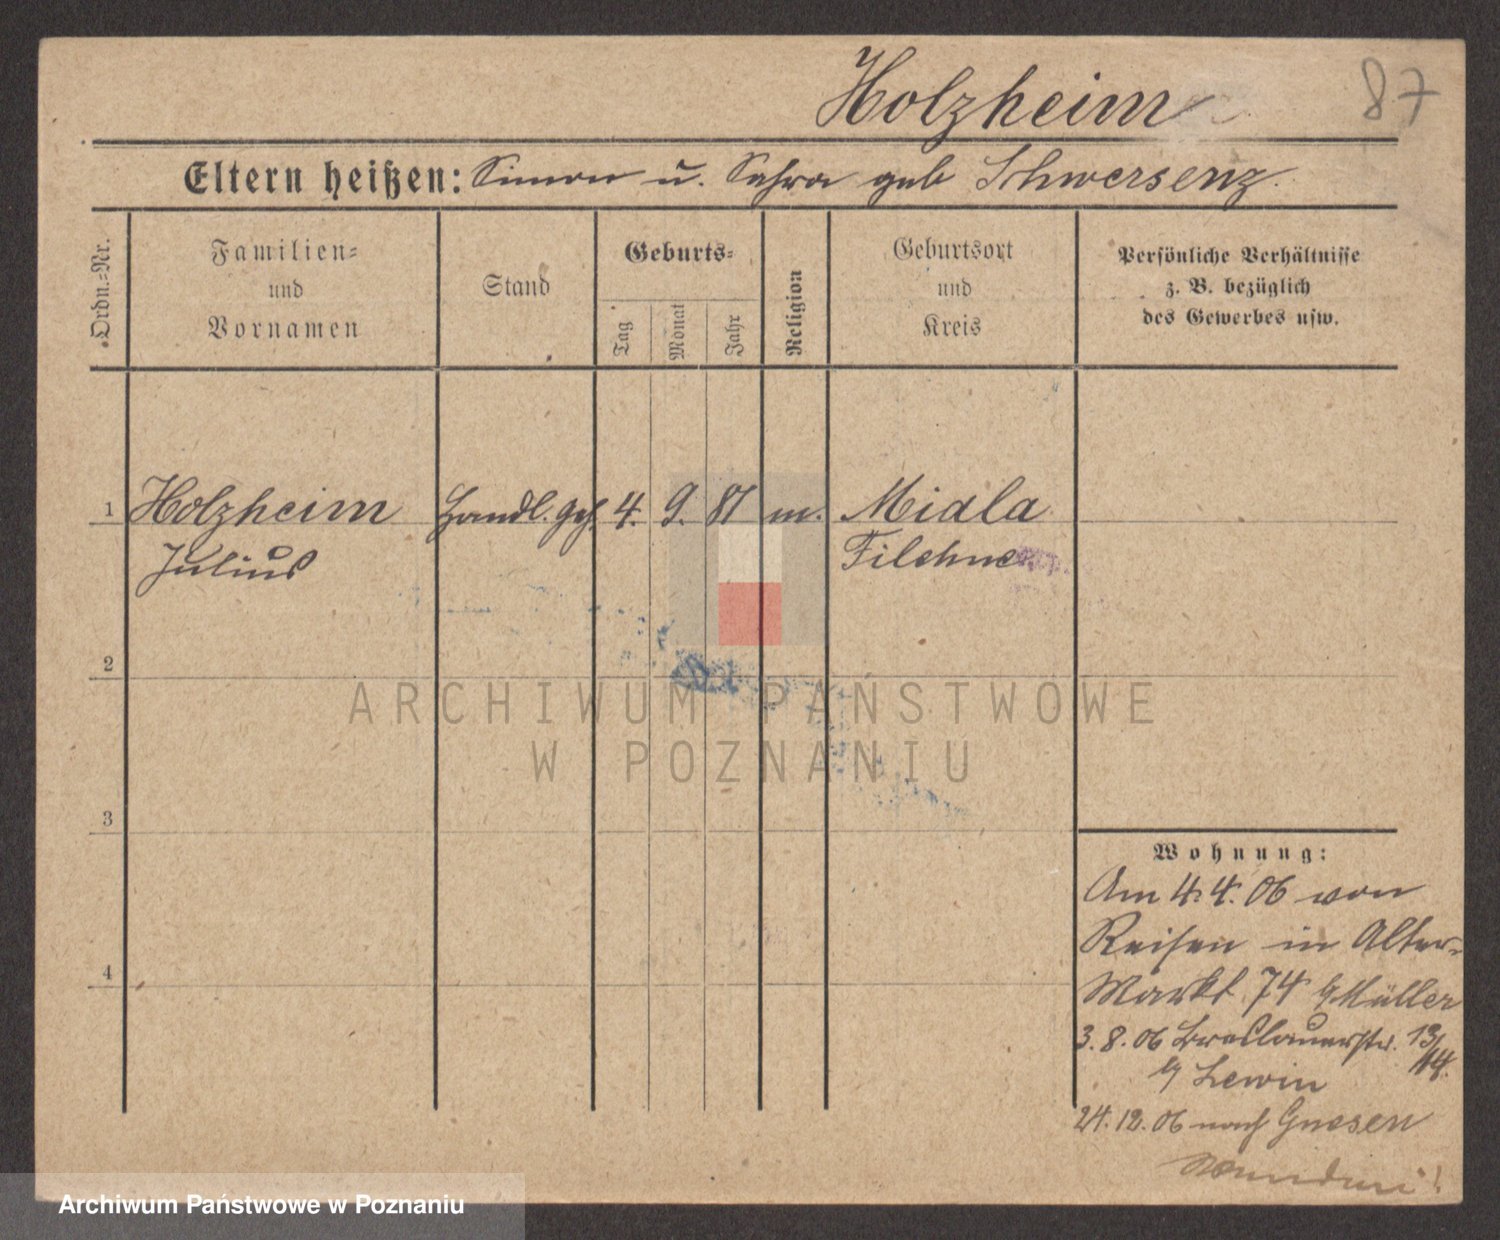 Holzheim
87
Eltern heißen: Simon u. Sahra geb Schwersenz.
Ordn.-Nr.
Familien- und Vornamen
Stand
Geburts-
Tag
Monat
Jahr
Religion
Geburtsort und Kreis
Persönliche Verhältnisse
z. B. bezüglich
des Gewerbes usw.
1
Holzheim
Julius
Handl. Geh.
4.
9.
81
m.
Mialla
Filehne
2
3
4
Wohnung:
Am 4. 4. 06 von
Reisen in Alter-
Markt 74 b/ Müller
3. 8. 06 Breslauerstr. 13/14.
b/ Lewin
24. 12. 06 nach Gnesen
ARCHIWUM PAŃSTWOWE
W POZNANIU
Archiwum Państwowe w Poznaniu